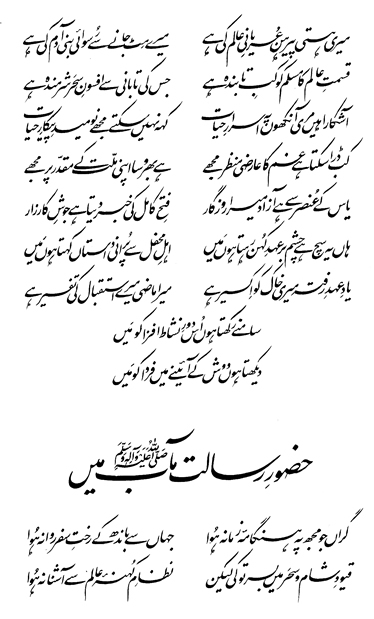 میری ہستی پیرہن عریانیِ عالم کی ہے میرے مٹ جانے سے رسوائی بنی آدم کی ہے
قسمتِ عالم کا مسلم کوکبِ تابندہ ہے جس کی تابانی سے افسونِ سحر شرمندہ ہے
آشکارا ہیں مری آنکھوں پہ اسرارِ حیات کہہ نہیں سکتے مجھے نومیدِ پیکارِ حیات
کب ڈرا سکتا ہے غم کا عارضی منظر مجھے ہے بھروسا اپنی ملّت کے مقدّر پر مجھے
یاس کے عُنصر سے ہے آزاد میرا روزگار فتحِ کامل کی خبر دیتا ہے جوشِ کارزار
ہاں یہ سچ ہے چشم بر عہدِ کہن رہتا ہوں مَیں اہلِ محفل سے پُرانی داستاں کہتا ہوں مَیں
یادِ عہدِ رفتہ میری خاک کو اکسیر ہے میرا ماضی میرے استقبال کی تفسیر ہے
سامنے رکھتا ہوں اُس دورِ نشاط افزا کو مَیں
دیکھتا ہوں دوش کے آئینے میں فردا کو مَیں
حضورِ رسالت مآب صلی اللہ علیہ وآلہ وسلم میں
گراں جو مجھ پہ یہ ہنگامۂ زمانہ ہُوا جہاں سے باندھ کے رختِ سفر روانہ ہُوا
قیودِ شام و سحر میں بسر تو کی لیکن نظامِ کُہنۂ عالم سے آشنا نہ ہُوا